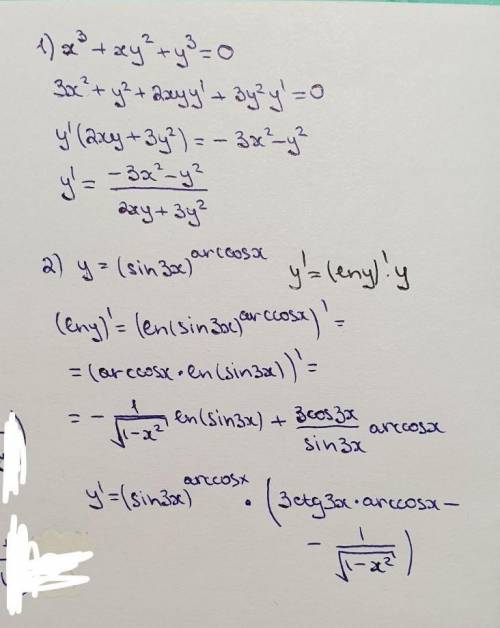 1) x³ + xy² + y³ = 0
3x² + y² + 2xyy' + 3y²y' = 0
y'(2xy + 3y²) = - 3x² - y²
y' = (-3x² - y²)/(2xy + 3y²)
2) y = (sin3x)^arccosx y' = (lny)'·y
(lny)' = (ln(sin3x)^arccosx)' =
= (arccosx · ln(sin3x))' =
= - 1/√(1-x²) ln(sin3x) + 3cos3x/sin3x arccosx
y' = (sin3x)^arccosx · (3ctg3x · arccosx -
- 1/√(1-x²))